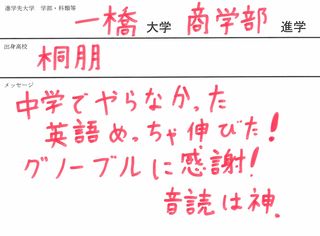 進学先大学　学部・科類等
一橋 大学 商学部 進学
出身高校
桐朋
メッセージ
中学でやらなかった
英語めっちゃ伸びた!
グノーブルに感謝!
音読は神.